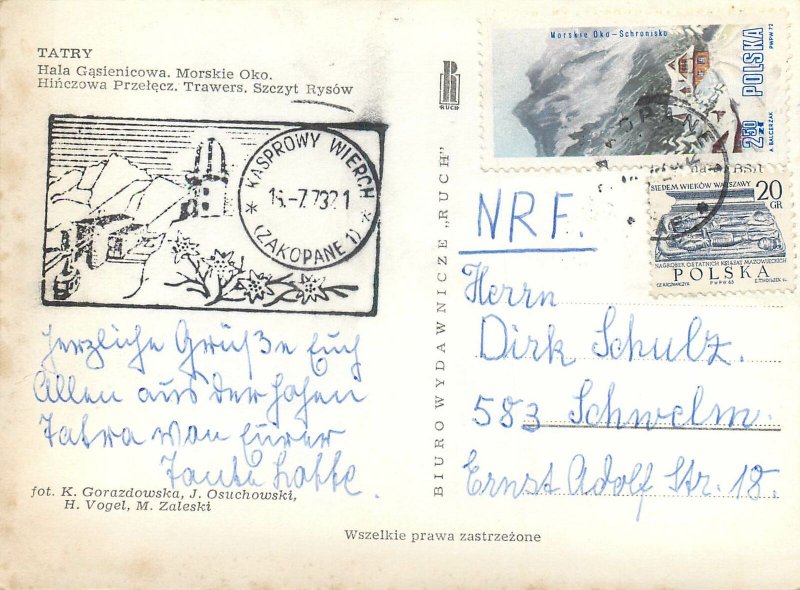 TATRY
Hala Gąsienicowa. Morskie Oko.
Hińczowa Przełęcz. Trawers. Szczyt Rysów
KASPROWY WIERCH
(ZAKOPANE 1)
Herzliche Grüße Euch
Allen aus der hohen
Tatra von Eurer
Tante Lotte.
fot. K. Gorazdowska, J. Osuchowski,
H. Vogel, M. Zaleski
RUCH
BIURO WYDAWNICZE „RUCH”
Morskie Oko - Schronisko
POLSKA
2,50 zł
PWPW 72
A. BALCERZAK
ZAKOPANE
SIEDEM WIEKÓW WARSZAWY
20 GR
NAGROBEK OSTATNICH KSIĄŻĄT MAZOWIECKICH
POLSKA
PWPW 65
NRF.
Herrn
Dirk Schulz.
583 Schwelm.
Ernst Adolf Str. 18.
Wszelkie prawa zastrzeżone